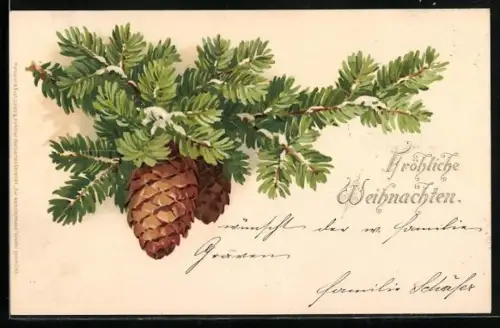 Fröhliche
Weihnachten.
wünscht der w. familie
Gräven
familie Schäfer